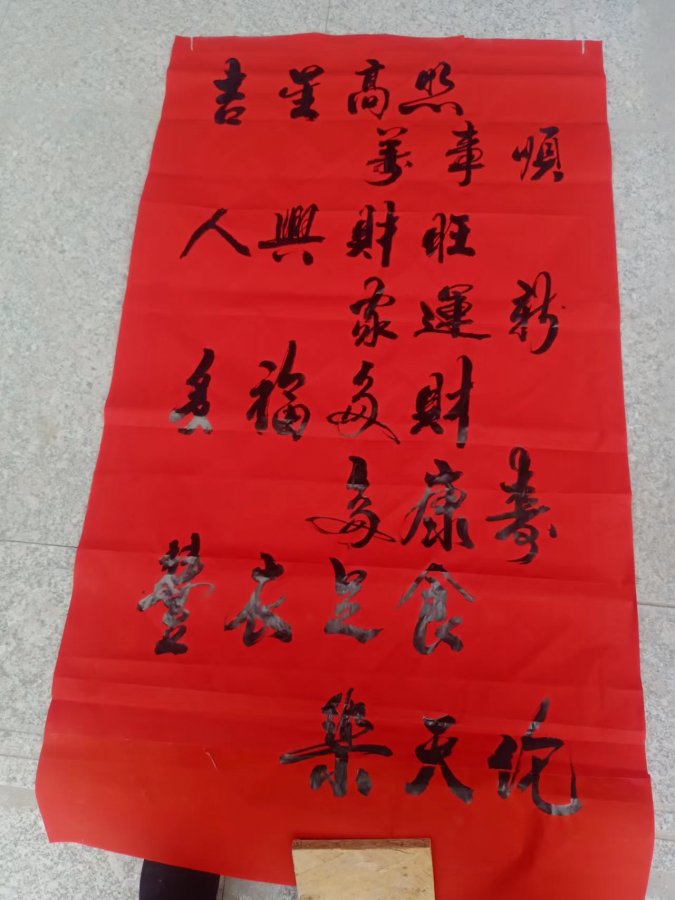 吉星高照
萬事順
人興財旺
家運新
多福多財
多康壽
豐衣足食
樂天伦